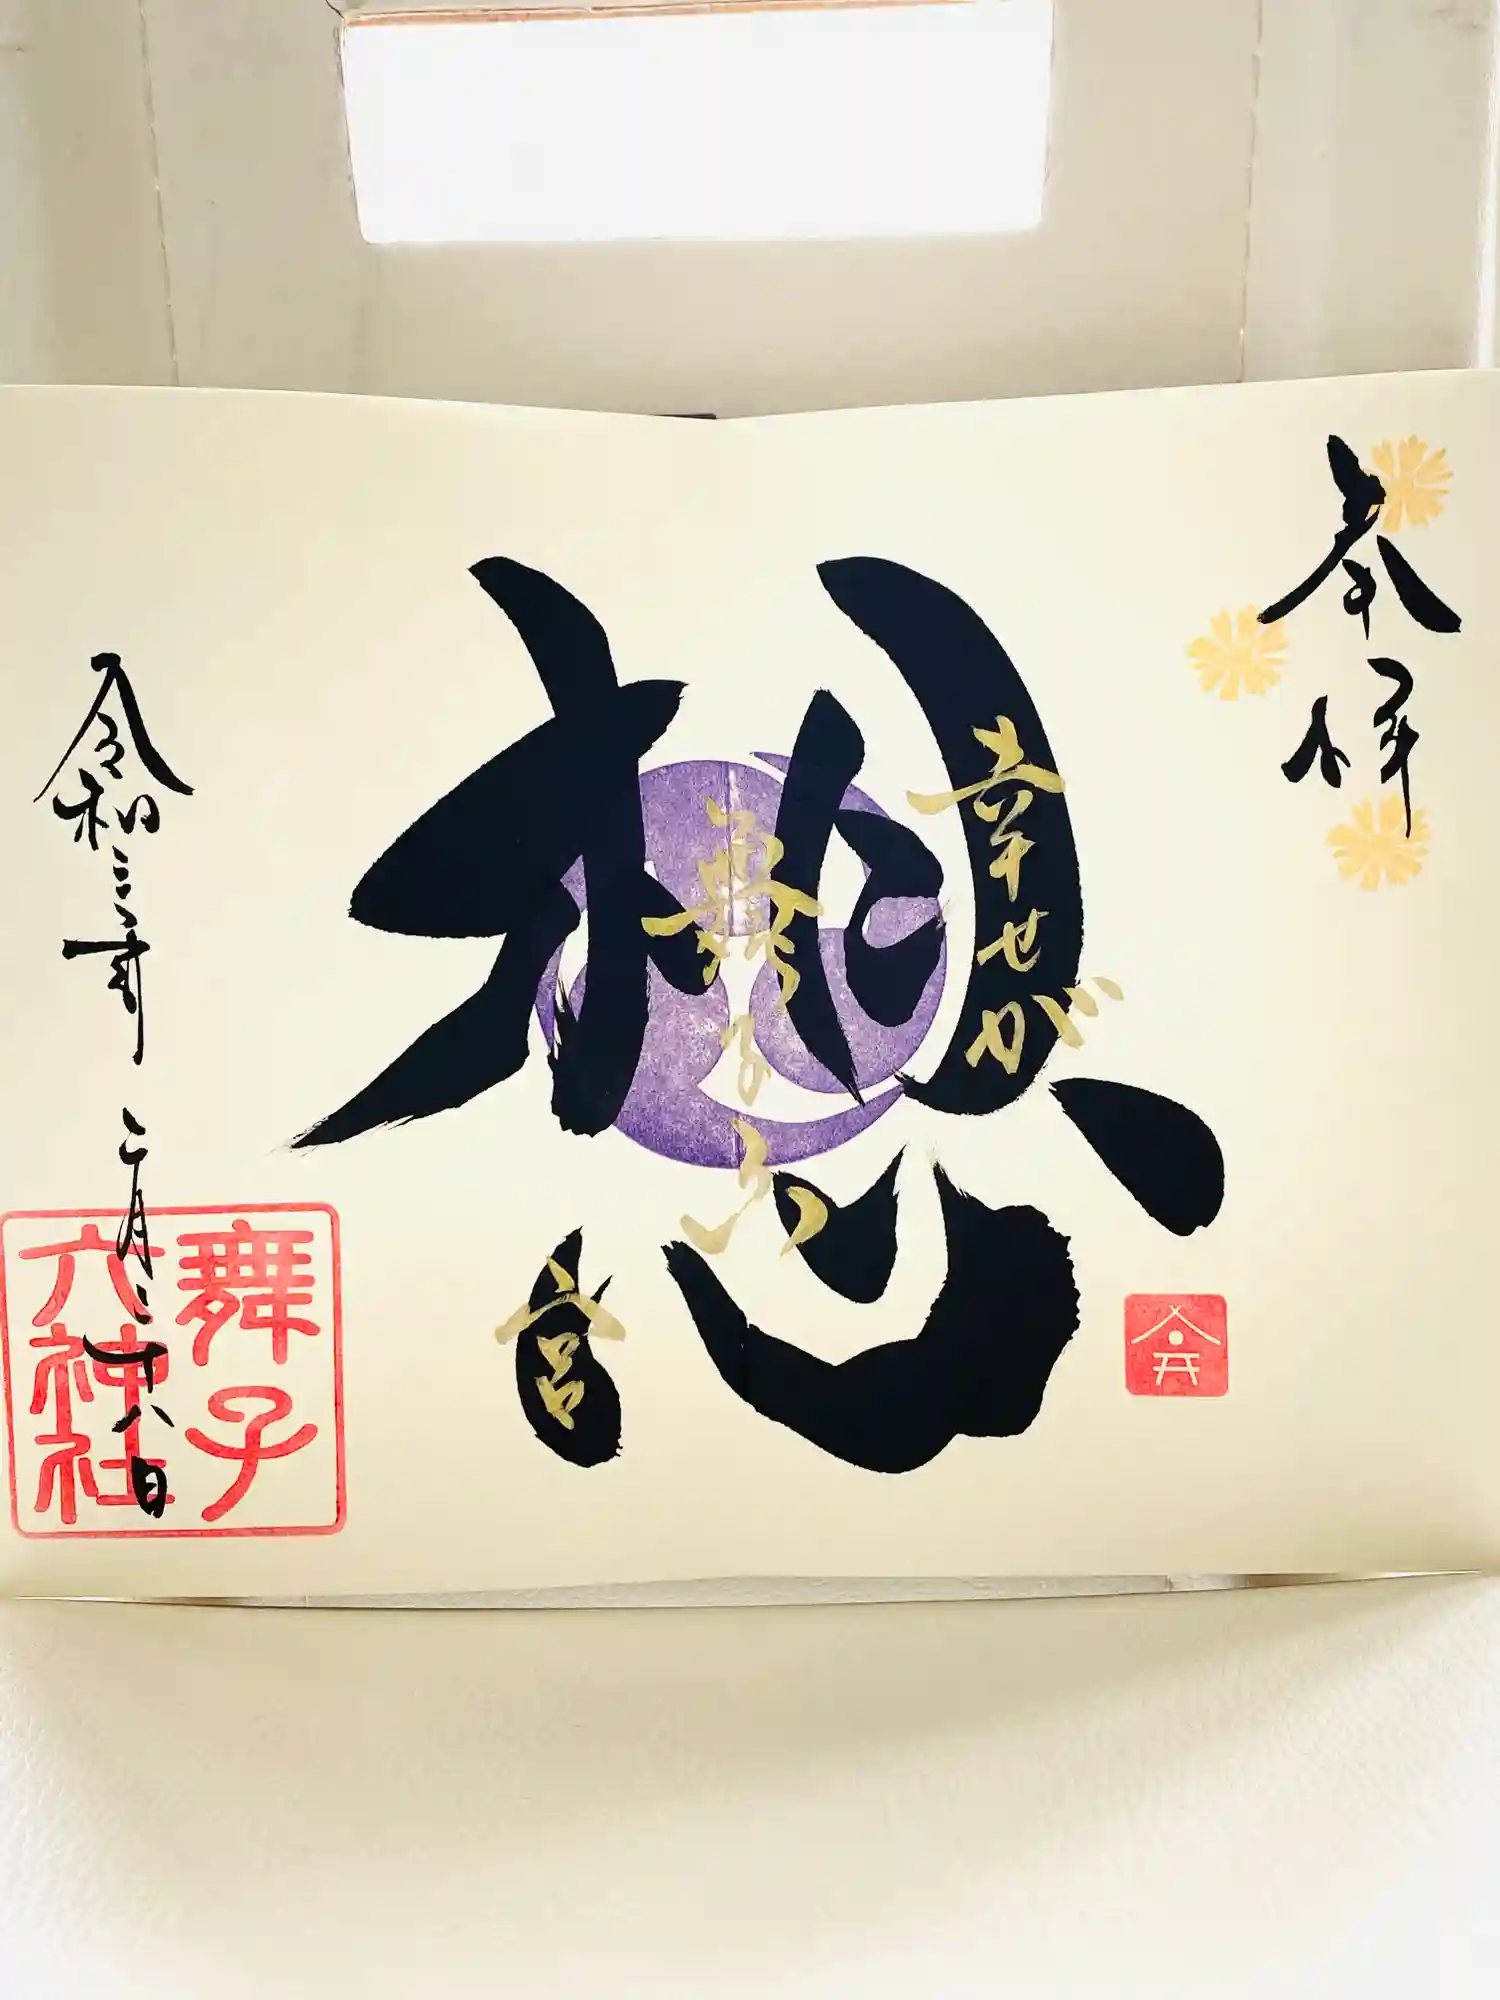 奉拝
想
幸せが
舞子る
六宮
令和三年二月二十八日
舞子
六神社